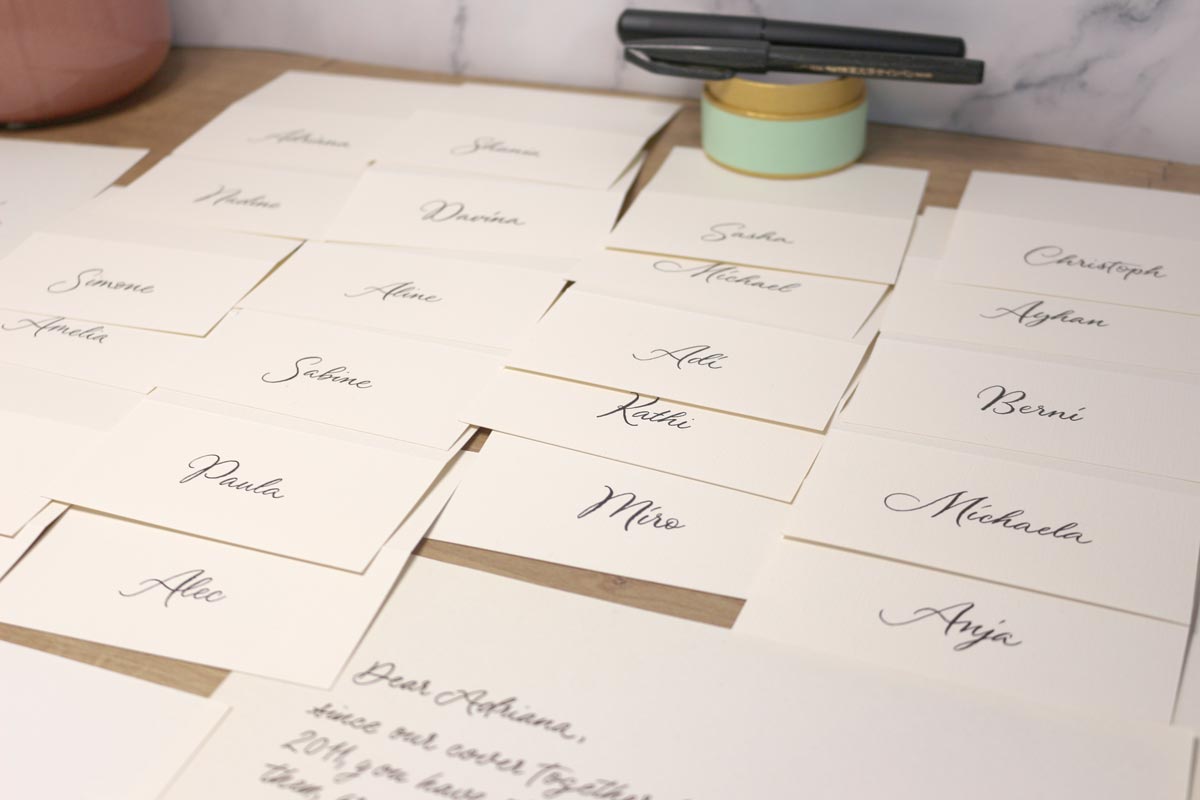 Adriana
Shania
Nadine
Davina
Sasha
Christoph
Simone
Aline
Michael
Ayhan
Amelia
Sabine
Adi
Berni
Kathi
Paula
Miro
Michaela
Alec
Anja
Dear Adriana,
since our cover together
2011, you have
then,